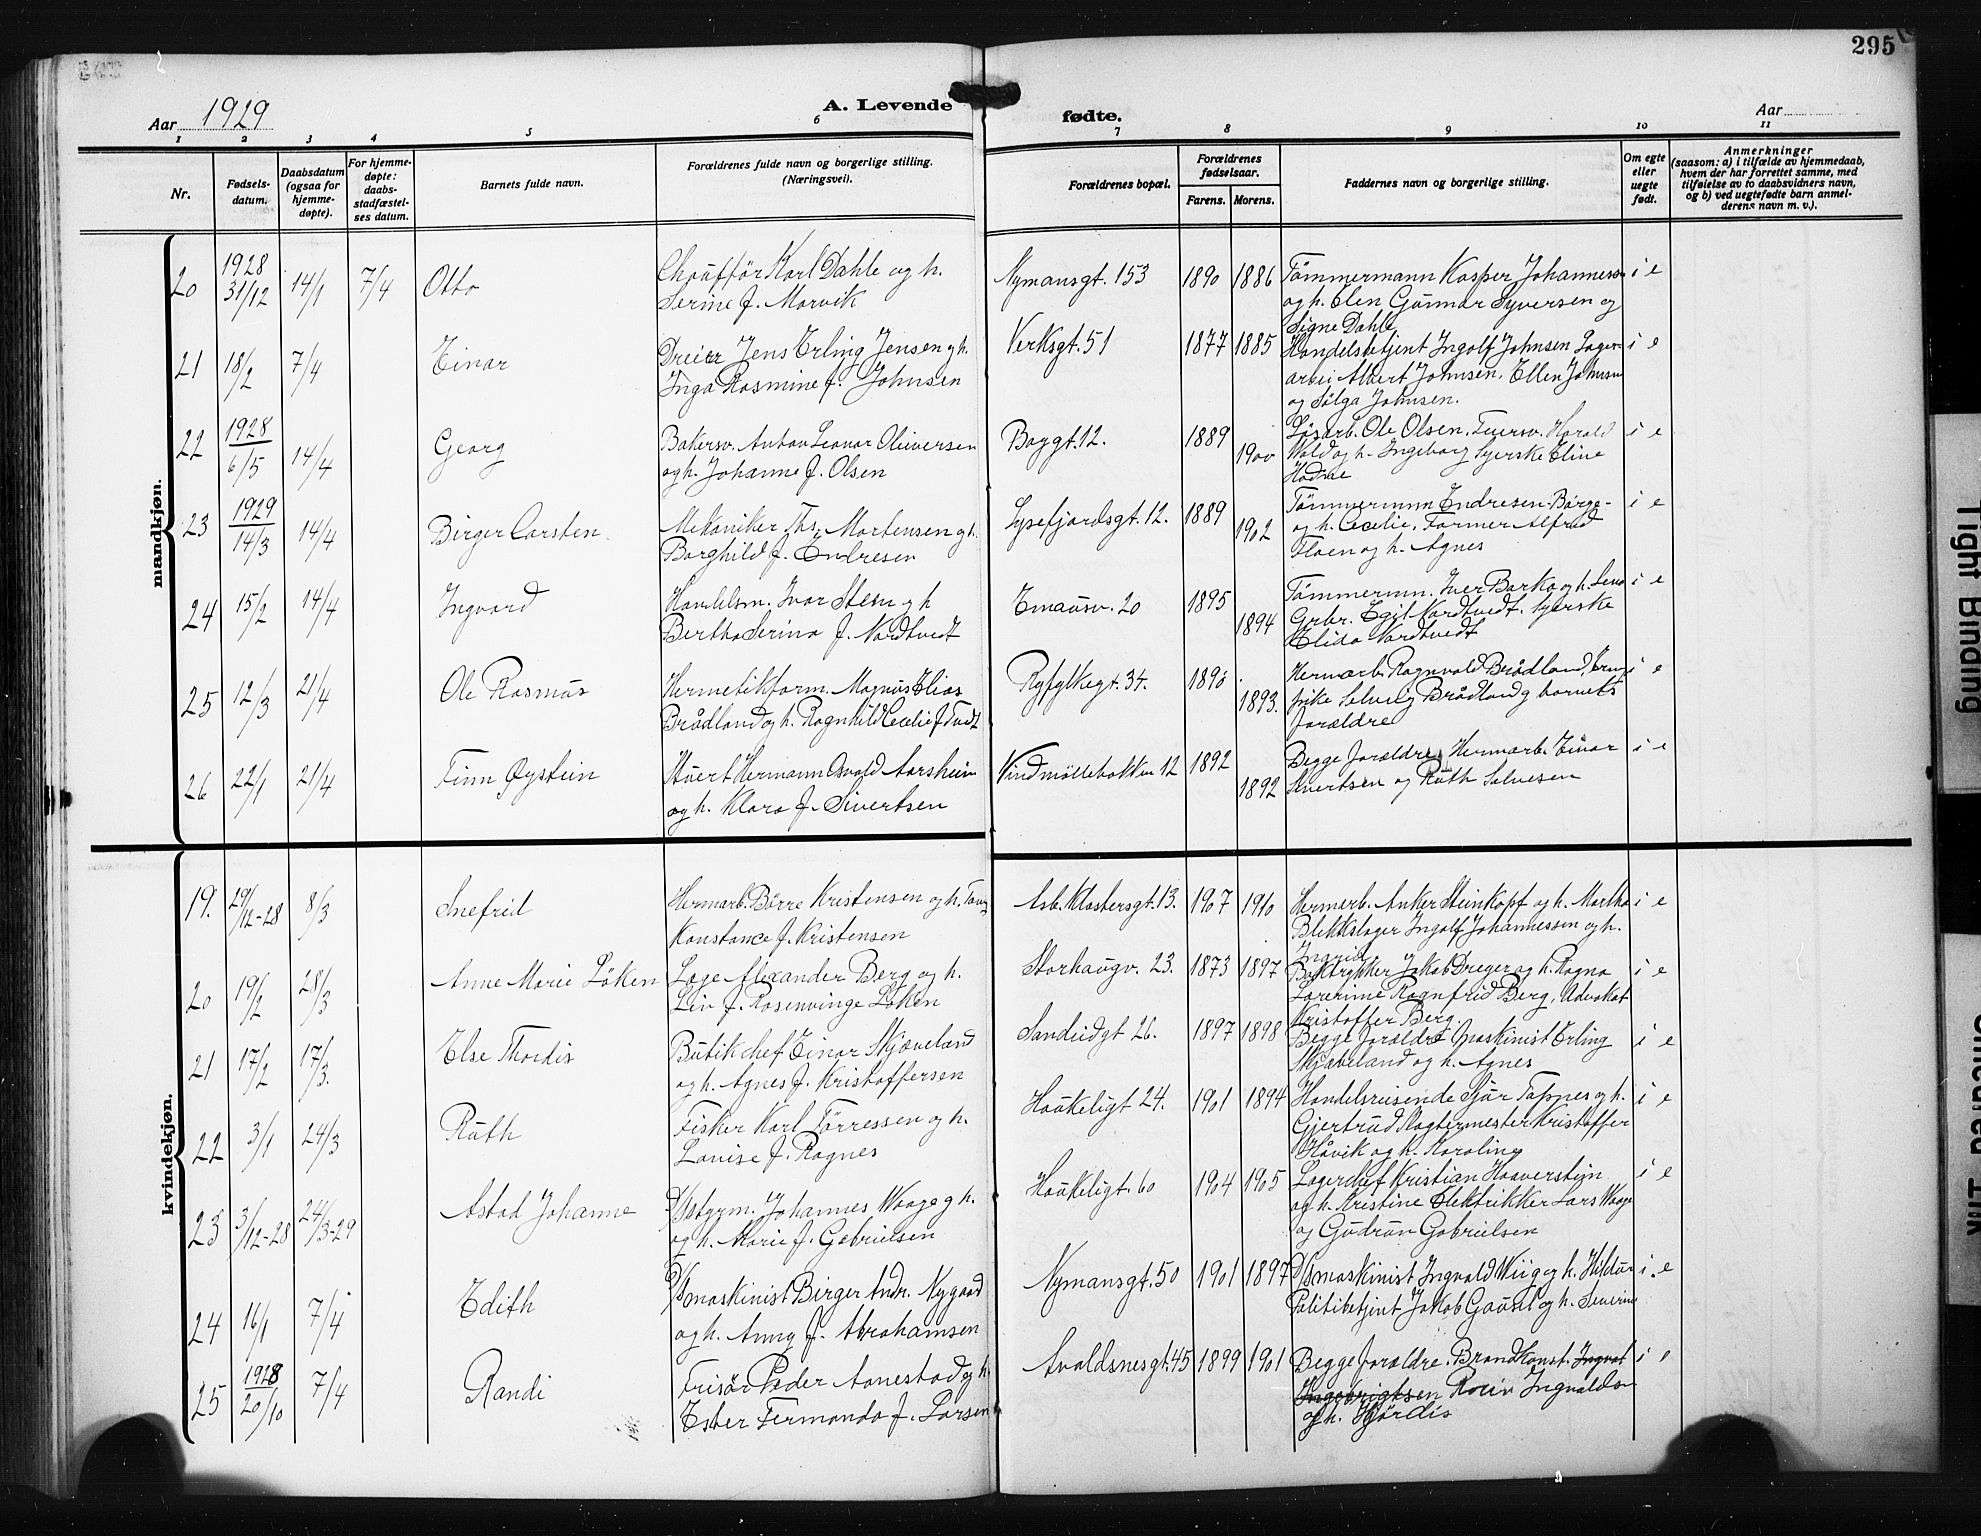 295
Aar 1929
A. Levende
fødte.
Aar
1 2 3 4 5 6 7 8 9 10 11
Nr.
Fødsels-
datum.
Daabsdatum
(ogsaa for
hjemme-
døpte).
For hjemme-
døpte:
daabs-
stadfæstel-
ses datum.
Barnets fulde navn.
Forældrenes fulde navn og borgerlige stilling.
(Næringsvei).
Forældrenes bopæl.
Forældrenes
fødselsaar.
Farens. Morens.
Faddernes navn og borgerlige stilling.
Om egte
eller
uegte
født.
Anmerkninger
(saasom: a) i tilfælde av hjemmedaab,
hvem der har forrettet samme, med
tilføielse av to daabsvidners navn,
og b) ved uegtefødte barn anmel-
derens navn m. v.).
mandkjøn.
20 1928 31/12 14/1 7/4 Otto
Chauffør Karl Dahle og h.
Serine f. Marvik
Nymansgt. 153 1890 1886
Tømmermann Kasper Johannessen
og h. Elen Gunnar Syversen og
Signe Dahle
i e
21 18/2 7/4 Einar
Dreier Jens Erling Jensen og h.
Inga Rasmine f. Johnsen
Verksgt. 51 1877 1885
Handelsbetjent Ingolf Johnsen Lager-
arbei Albert Johnsen, Ellen Johnsen
og Sølga Johnsen.
i e
22 1928 6/5 14/4 Georg
Bakersv. Anton Leonar Oliversen
og h. Johanne f. Olsen
Bøygt. 12. 1889 1900
Løsarb. Ole Olsen, Harald
Wold og h. Ingeborg Syerske Eline
i e
23 1929 14/3 14/4 Birger Carsten
Mekaniker Ths. Mortensen og h.
Borghild f. Endresen
Lysefjordsgt. 12. 1889 1902
Tømmermnn Endresen-Børge-
og h. Cecelie, Former Alfred
Floen og h. Agnes
i e
24 15/2 14/4 Ingvard
Handelsm. Ivar Steen og h
Bertha Serina f. Nordtvedt
Emausv. 20 1895 1894
Tømmermn. Iver Barka og h. Lena
Grbr. Egil Nordtvedt. Syerske
Elida Nordtvedt
i e
25 12/3 21/4 Ole Rasmus
Hermetikform. Magnus Elias
Brådland og h. Ragnhild Cecelie f. Tvedt
Ryfylkegt. 34. 1890 1893.
Hermarb. Ragnvald Brådland,
frike Solveig Brådland og barnets
forældre
i e
26 22/1 21/4 Finn Øystein
Stuert Hermann Osvald Aarsheim
og h. Klara f. Sivertsen
Vindmøllebakken 12 1892 1892
Begge forældre, Hermarb. Einar
Sivertsen og Ruth Salvesen
i e
kvindekjøn.
19. 29/12-28 8/3 Snefrid
Hermarb. Børre Kristensen og h.
Konstance f. Kristensen
Asb. Klostersgt. 13. 1907 1910
Hermarb. Anker Steinkopf og h. Martha
Blekkslager Ingolf Johannessen og h.
Ingrid
i e
20 19/2 28/3 Anne Marie Løken
Læge Alexander Berg og h.
Liv f. Rosenvinge Løken
Storhaugv. 23. 1873 1897
Boktrykker Jakob Dreyer og h. Ragna
Lærerinne Ragnfrid Berg, Advokat
Kristoffer Berg.
i e
21 17/2 17/3. Else Thordis
Butikchef Einar Skjæveland
og h. Agnes f. Kristoffersen
Sandeidgt 26. 1897 1898
Begge forældre Maskinist Erling
Skjæveland og h. Agnes
i e
22 3/1 24/3 Ruth
Fisker Karl Tørressen og h.
Louise f. Ragnes
Haukeligt 24. 1901 1894
Handelsreisende Sjur Tapnes og h.
Gjertrud Slagtermester Kristoffer
Håvik og h. Karoline
i e
23 3/12-28 24/3-29 Astad Johanne
D/Sstyrm. Johannes Waage og h.
og h. Marie f. Gabrielsen
Haukeligt. 60 1904 1905
Lagerchef Kristian Haaversteijn
og h. Kristine Elektrikker Lars Waage
og Gudrun Gabrielsen
i e
24 16/1 7/4 Edith
D/Smaskinist Birger Andr. Nygaard
og h. Anny f. Abrahamsen
Nymansgt. 50 1901 1897
D/Smaskinist Ingvald Wiig og h. Hildur
Politibetjent Jakob Gausel og h. Severine
i e
25 1928 20/10 7/4 Randi
Frisør Peder Aanestad og h.
Ester Fernanda f. Larsen
Avaldsnesgt. 45 1899 1901
Begge forældre. Brandkonst. Ingvat
Ingebrigtsen Ingvalds
og h. Hjørdis
i e
Tight Binding